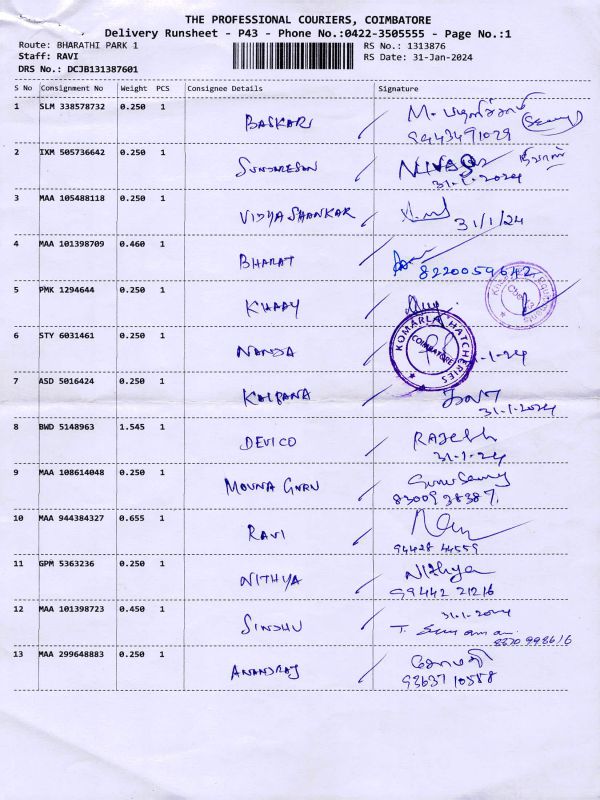 THE PROFESSIONAL COURIERS, COIMBATORE
Delivery Runsheet - P43 - Phone No.:0422-3505555 - Page No.:1
Route: BHARATHI PARK 1 RS No.: 1313876
Staff: RAVI RS Date: 31-Jan-2024
DRS No.: DCJB131387601
S No Consignment No Weight PCS Consignee Details Signature
1 SLM 338578732 0.250 1 BASKAR
9443491029
2 IXM 505736642 0.250 1 SUNDARESAN
31-1-2024
3 MAA 105488118 0.250 1 VIDYA SHANKAR 31/1/24
4 MAA 101398709 0.460 1 BHARAT
8220059642
5 PMK 1294644 0.250 1
KOMARLA HATCHERIES
COIMBATORE
6 STY 6031461 0.250 1 NANDA
7 ASD 5016424 0.250 1 KALPANA
31-1-2024
8 BWD 5148963 1.545 1 DEVICO RAJESH
31-1-24
9 MAA 108614048 0.250 1 MOUNA GURU
10 MAA 944384327 0.655 1 RAVI
94428 44559
11 GPM 5363236 0.250 1 NITHYA Nithya
99442 21216
12 MAA 101398723 0.450 1 SINDHU 31-1-2024
13 MAA 299648883 0.250 1 ANANDRAJ
93637 10588